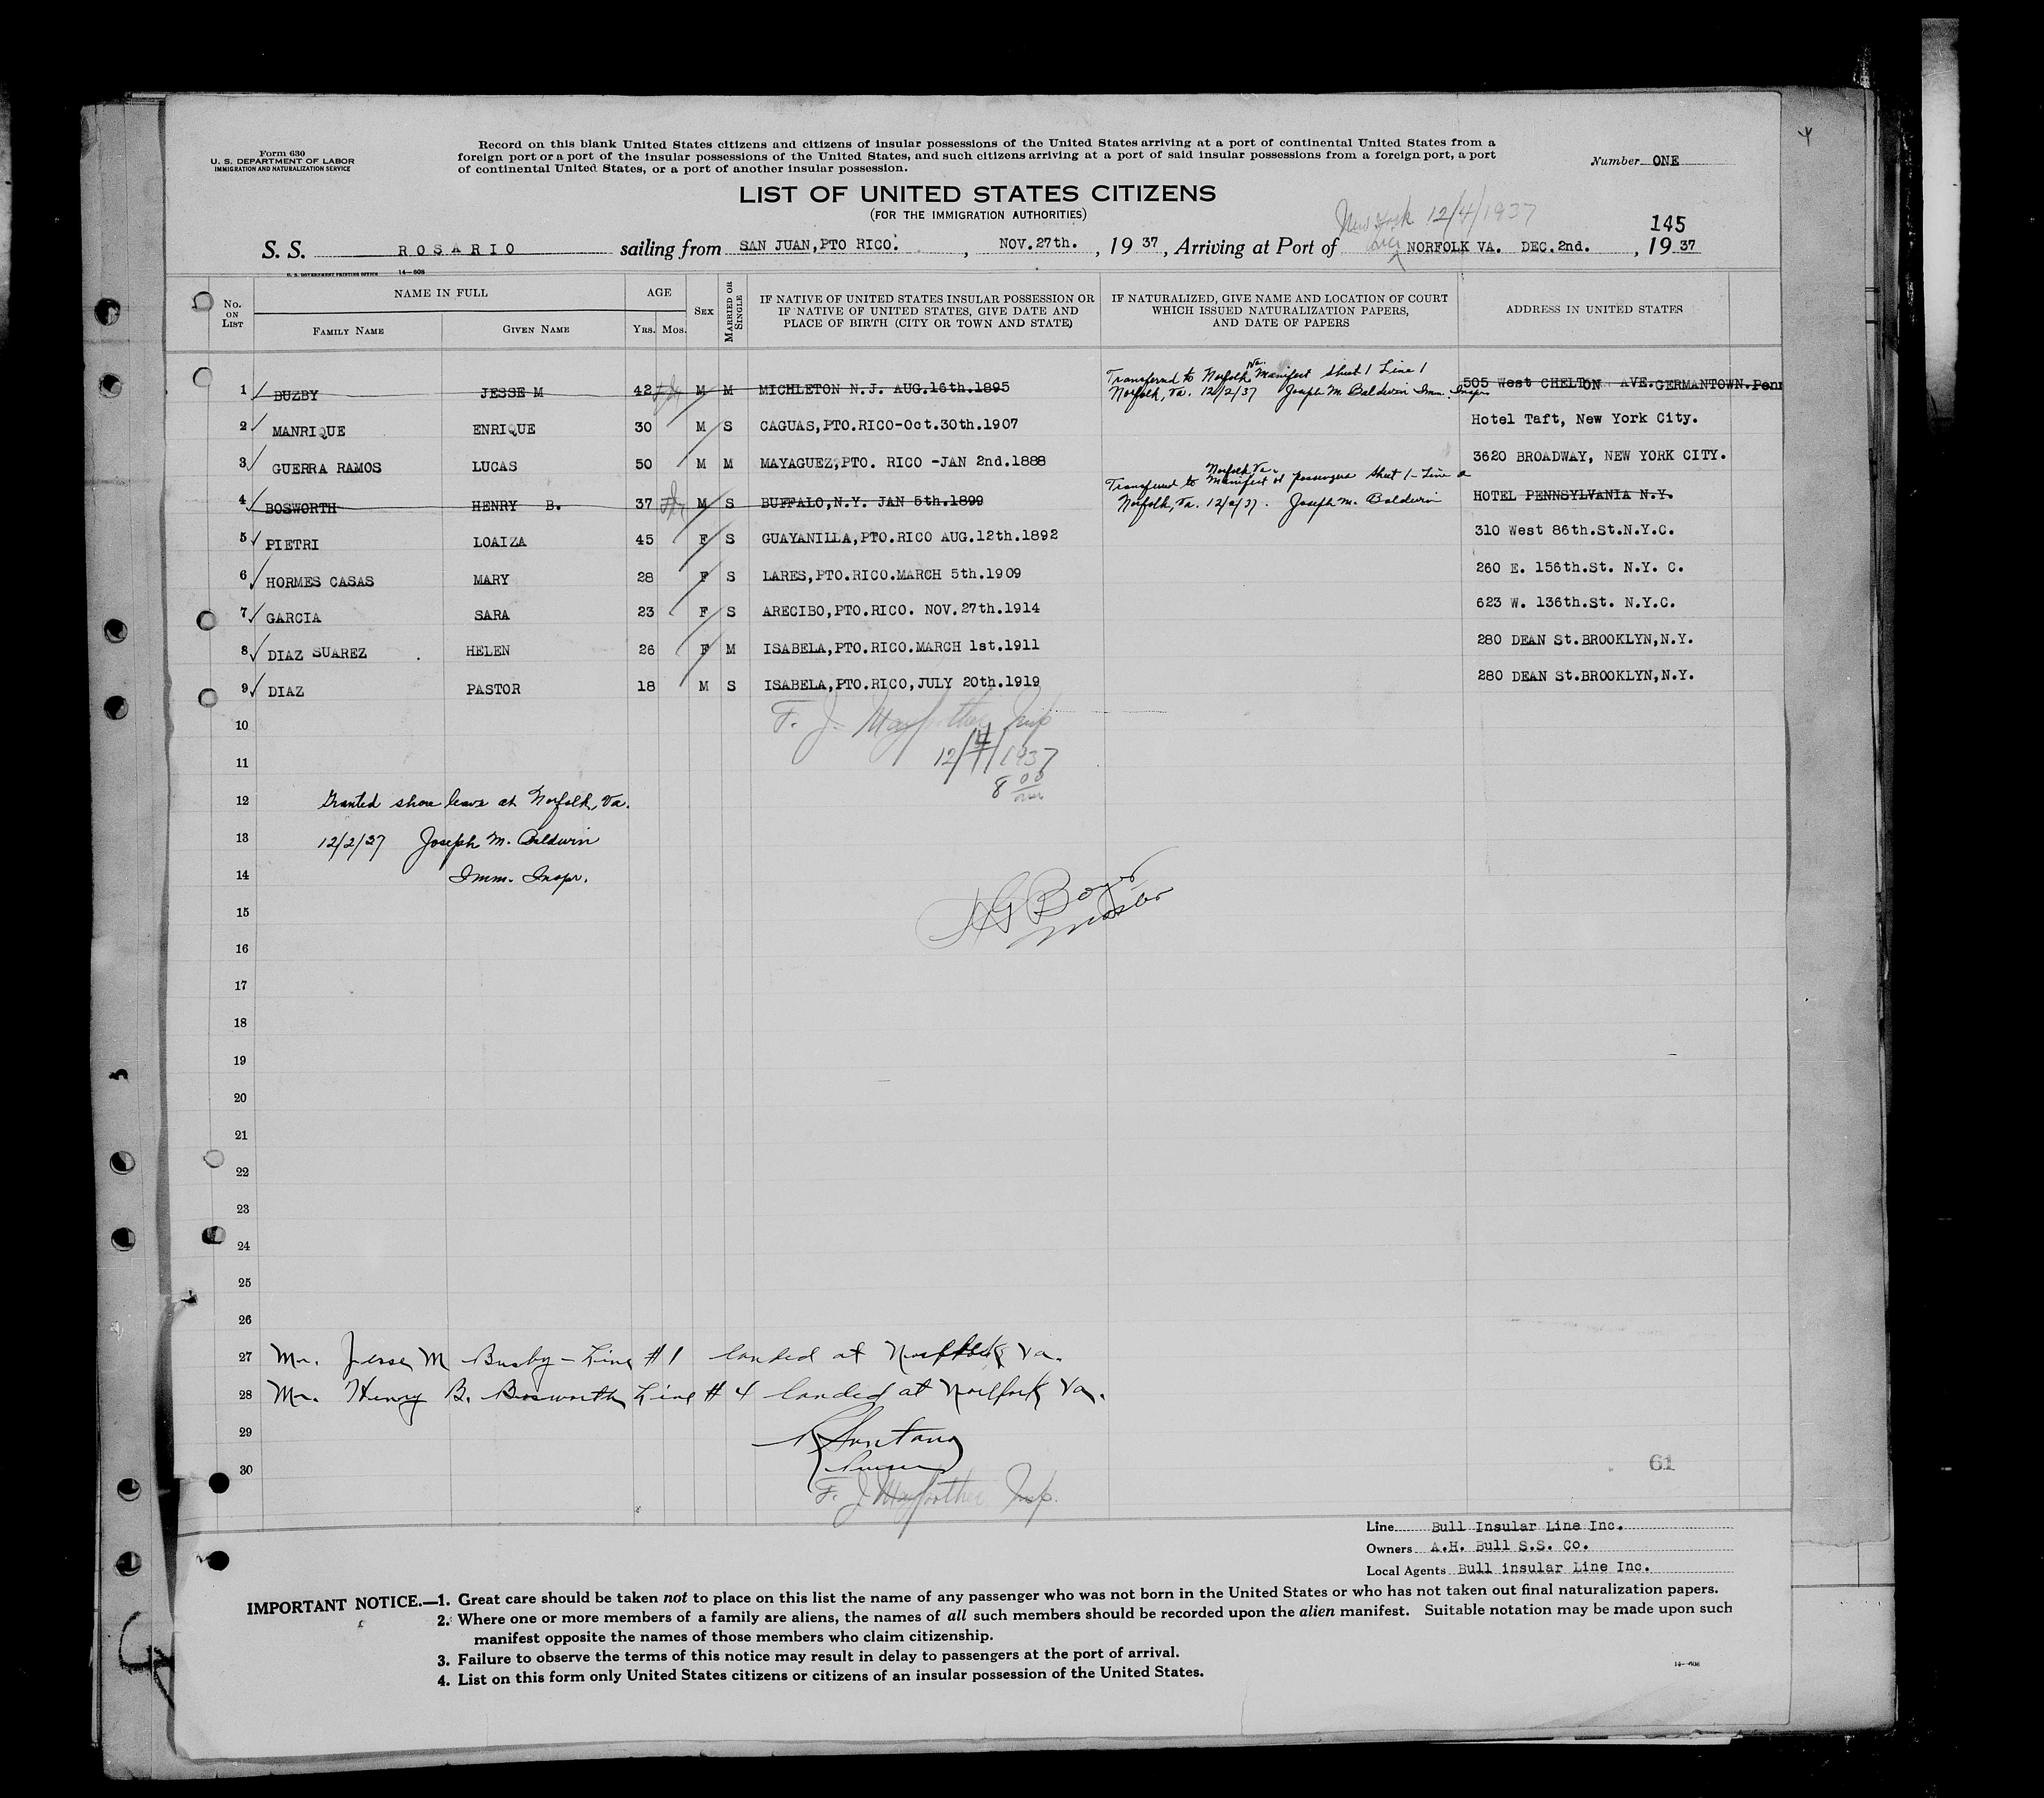 Form 630
U. S. DEPARTMENT OF LABOR
IMMIGRATION AND NATURALIZATION SERVICE
Record on this blank United States citizens and citizens of insular possessions of the United States arriving at a port of continental United States from a
foreign port or a port of the insular possessions of the United States, and such citizens arriving at a port of said insular possessions from a foreign port, a port
of continental United States, or a port of another insular possession.
Number ONE
LIST OF UNITED STATES CITIZENS
(FOR THE IMMIGRATION AUTHORITIES)
New York 12/4/1937
145
S. S. ROSARIO sailing from SAN JUAN,PTO RICO. , NOV.27th. , 19 37 , Arriving at Port of NORFOLK VA. DEC.2nd. , 19 37
U. S. GOVERNMENT PRINTING OFFICE 14—608
No. ON LIST
NAME IN FULL
FAMILY NAME
GIVEN NAME
AGE
YRS. MOS.
SEX
MARRIED OR SINGLE
IF NATIVE OF UNITED STATES INSULAR POSSESSION OR
IF NATIVE OF UNITED STATES, GIVE DATE AND
PLACE OF BIRTH (CITY OR TOWN AND STATE)
IF NATURALIZED, GIVE NAME AND LOCATION OF COURT
WHICH ISSUED NATURALIZATION PAPERS,
AND DATE OF PAPERS
ADDRESS IN UNITED STATES
Transferred to Norfolk Va. Manifest sheet 1 Line 1
Norfolk, Va. 12/2/37 Joseph M. Baldwin Imm. Inspr.
1 BUZBY JESSE M 42 M M MICHLETON N.J. AUG.16th.1895 505 West CHELTON AVE.GERMANTOWN.Penn
2 MANRIQUE ENRIQUE 30 M S CAGUAS,PTO.RICO-Oct.30th.1907 Hotel Taft, New York City.
3 GUERRA RAMOS LUCAS 50 M M MAYAGUEZ,PTO. RICO -JAN 2nd.1888 3620 BROADWAY, NEW YORK CITY.
Norfolk Va.
Transferred to Manifest of passengers sheet 1- Line 2
Norfolk, Va. 12/2/37. Joseph M. Baldwin
4 BOSWORTH HENRY B. 37 M S BUFFALO,N.Y. JAN 5th.1899 HOTEL PENNSYLVANIA N.Y.
5 PIETRI LOAIZA 45 F S GUAYANILLA,PTO.RICO AUG.12th.1892 310 West 86th.St.N.Y.C.
6 HORMES CASAS MARY 28 F S LARES,PTO.RICO.MARCH 5th.1909 260 E. 156th.St. N.Y. C.
7 GARCIA SARA 23 F S ARECIBO,PTO.RICO. NOV.27th.1914 623 W. 136th.St. N.Y.C.
8 DIAZ SUAREZ HELEN 26 F M ISABELA,PTO.RICO.MARCH 1st.1911 280 DEAN St.BROOKLYN,N.Y.
9 DIAZ PASTOR 18 M S ISABELA,PTO.RICO,JULY 20th.1919 280 DEAN St.BROOKLYN,N.Y.
10 F. J. Insp
11 12/4/1937
8 00
12 Granted shore leave at Norfolk, Va.
13 12/2/37 Joseph M. Baldwin
14 Imm. Inspr.
15 Master
16
17
18
19
20
21
22
23
24
25
26
27 Mr. Jesse M Busby - Line #1 landed at Norfolk Va.
28 Mr. Henry B. Bosworth Line #4 landed at Norfolk Va.
29
30
F. J. Insp.
61
Line Bull Insular Line Inc.
Owners A.H. Bull S.S. Co.
Local Agents Bull insular Line Inc.
IMPORTANT NOTICE.—1. Great care should be taken not to place on this list the name of any passenger who was not born in the United States or who has not taken out final naturalization papers.
2. Where one or more members of a family are aliens, the names of all such members should be recorded upon the alien manifest. Suitable notation may be made upon such
manifest opposite the names of those members who claim citizenship.
3. Failure to observe the terms of this notice may result in delay to passengers at the port of arrival.
4. List on this form only United States citizens or citizens of an insular possession of the United States.
14—608